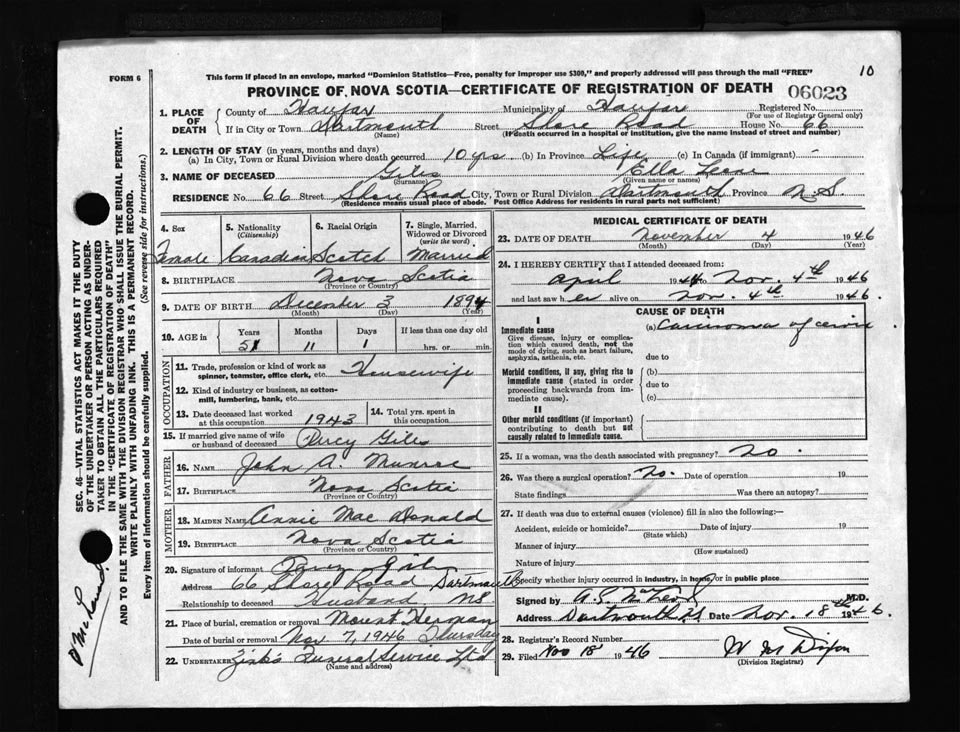 FORM 6
This form if placed in an envelope, marked "Dominion Statistics—Free, penalty for improper use $300," and properly addressed will pass through the mail "FREE"
10
PROVINCE OF NOVA SCOTIA—CERTIFICATE OF REGISTRATION OF DEATH 06023
1. PLACE OF DEATH
County of Halifax Municipality of Halifax Registered No.
(For use of Registrar General only)
If in City or Town Dartmouth Street Shore Road House No. 66
(Name) (If death occurred in a hospital or institution, give the name instead of street and number)
2. LENGTH OF STAY (in years, months and days)
(a) In City, Town or Rural Division where death occurred 10 yrs. (b) In Province Life (c) In Canada (if immigrant) -
3. NAME OF DECEASED Giles Ella
(Surname) (Given name or names)
RESIDENCE No. 66 Street Shore Road City, Town or Rural Division Dartmouth Province N.S.
(Residence means usual place of abode. Post Office Address for residents in rural parts not sufficient)
4. Sex
Female
5. Nationality
(Citizenship)
Canadian
6. Racial Origin
Scotch
7. Single, Married, Widowed or Divorced
(write the word)
Married
8. BIRTHPLACE Nova Scotia
(Province or Country)
9. DATE OF BIRTH December 3 1894
(Month) (Day) (Year)
10. AGE in Years Months Days If less than one day old
51 11 1 hrs. or min.
OCCUPATION
11. Trade, profession or kind of work as spinner, teamster, office clerk, etc. Housewife
12. Kind of industry or business, as cotton-mill, lumbering, bank, etc.
13. Date deceased last worked at this occupation 1943
14. Total yrs. spent in this occupation
15. If married give name of wife or husband of deceased Percy Giles
FATHER
16. NAME John A. Munroe
17. BIRTHPLACE Nova Scotia
(Province or Country)
MOTHER
18. MAIDEN NAME Annie Mac Donald
19. BIRTHPLACE Nova Scotia
(Province or Country)
20. Signature of informant Percy Giles
Address 66 Shore Road Dartmouth
Relationship to deceased Husband NS.
21. Place of burial, cremation or removal Mount Herman
Date of burial or removal Nov 7, 1946 Thursday
22. UNDERTAKER Zink's Funeral Service Ltd
(Name and address)
MEDICAL CERTIFICATE OF DEATH
23. DATE OF DEATH November 4 1946
(Month) (Day) (Year)
24. I HEREBY CERTIFY that I attended deceased from:
April 1944 to Nov. 4th 1946
and last saw her alive on Nov. 4th 1946.
CAUSE OF DEATH
I
Immediate cause
Give disease, injury or complication which caused death, not the mode of dying, such as heart failure, asphyxia, asthenia, etc.
(a) Carcinoma of cervix
due to
Morbid conditions, if any, giving rise to immediate cause (stated in order proceeding backwards from immediate cause).
(b)
due to
(c)
II
Other morbid conditions (if important) contributing to death but not causally related to immediate cause.
25. If a woman, was the death associated with pregnancy? no.
26. Was there a surgical operation? no. Date of operation 19
State findings Was there an autopsy?
27. If death was due to external causes (violence) fill in also the following:—
Accident, suicide or homicide? Date of injury 19
(State which)
Manner of injury
(How sustained)
Nature of injury
Specify whether injury occurred in industry, in home or in public place
Signed by M.D.
Address Dartmouth Date Nov. 18th 1946.
28. Registrar's Record Number
29. Filed Nov 18 1946 W M Dixon
(Division Registrar)
SEC. 46—VITAL STATISTICS ACT MAKES IT THE DUTY
OF THE UNDERTAKER OR PERSON ACTING AS UNDERTAKER TO OBTAIN ALL THE PARTICULARS REQUIRED
IN THE "CERTIFICATE OF REGISTRATION OF DEATH"
AND TO FILE THE SAME WITH THE DIVISION REGISTRAR WHO SHALL ISSUE THE BURIAL PERMIT.
WRITE PLAINLY WITH UNFADING INK. THIS IS A PERMANENT RECORD.
Every item of information should be carefully supplied. (See reverse side for instructions.)